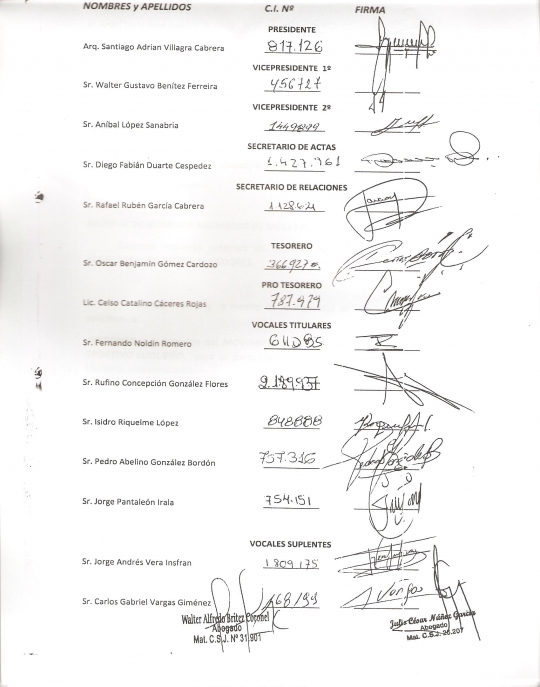 NOMBRES y APELLIDOS C.I. Nº FIRMA
PRESIDENTE
Arq. Santiago Adrian Villagra Cabrera 817.126
VICEPRESIDENTE 1º
Sr. Walter Gustavo Benítez Ferreira 456727
VICEPRESIDENTE 2º
Sr. Aníbal López Sanabria
SECRETARIO DE ACTAS
Sr. Diego Fabián Duarte Cespedez 1.427.961
SECRETARIO DE RELACIONES
Sr. Rafael Rubén García Cabrera
TESORERO
Sr. Oscar Benjamín Gómez Cardozo
PRO TESORERO
Lic. Celso Catalino Cáceres Rojas 787.479
VOCALES TITULARES
Sr. Fernando Noldin Romero
Sr. Rufino Concepción González Flores 2.189937
Sr. Isidro Riquelme López 848888
Sr. Pedro Abelino González Bordón 757.316
Sr. Jorge Pantaleón Irala 754.151
VOCALES SUPLENTES
Sr. Jorge Andrés Vera Insfran 1809175
Sr. Carlos Gabriel Vargas Giménez
Walter Alfredo Britez Coronel
Abogado
Mat. C.S.J. Nº 31.901
Julio César Núñez García
Abogado
Mat. C.S.J. 26.207